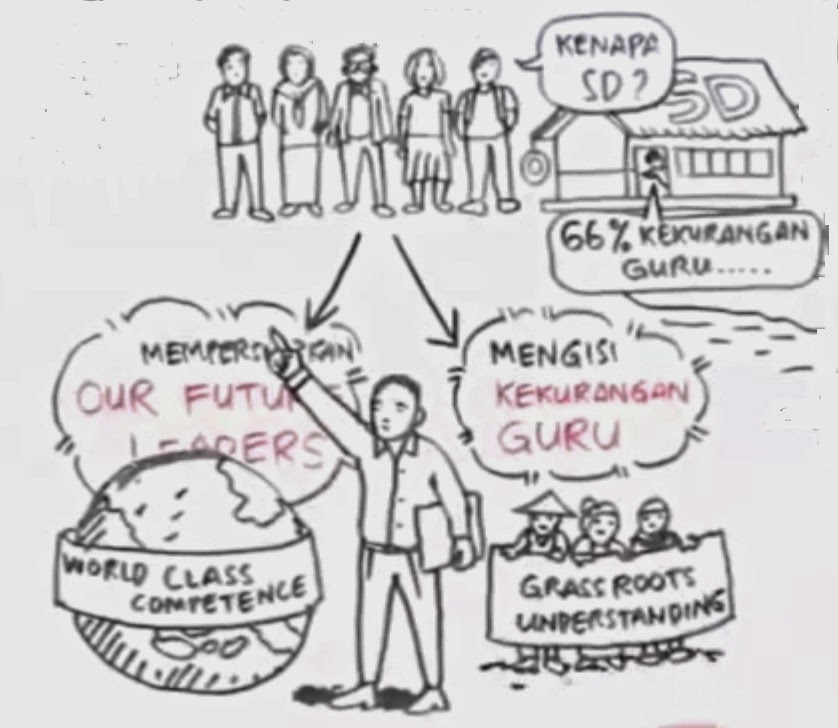 KENAPA
SD?
SD
66% KEKURANGAN
GURU.....
OUR FUTURE
LEADERS
MENGISI
KEKURANGAN
GURU
WORLD CLASS
COMPETENCE
GRASSROOTS
UNDERSTANDING